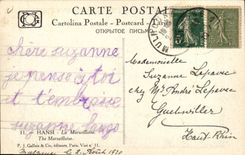 CARTE POSTALE
Cartolina Postale - Postcard -
ОТКРЫТОЕ ПИСЬМО
chère suzanne
je pense à toi
et t'embrasse
suzanne
HANSI Le Marseillaise.
The Marseillaise.
P. J. Gallais & Co, éditeurs Paris
Mademoiselle
Suzanne Lepavec
chez Mr André Lepavec
Guebwiller
Haut Rhin